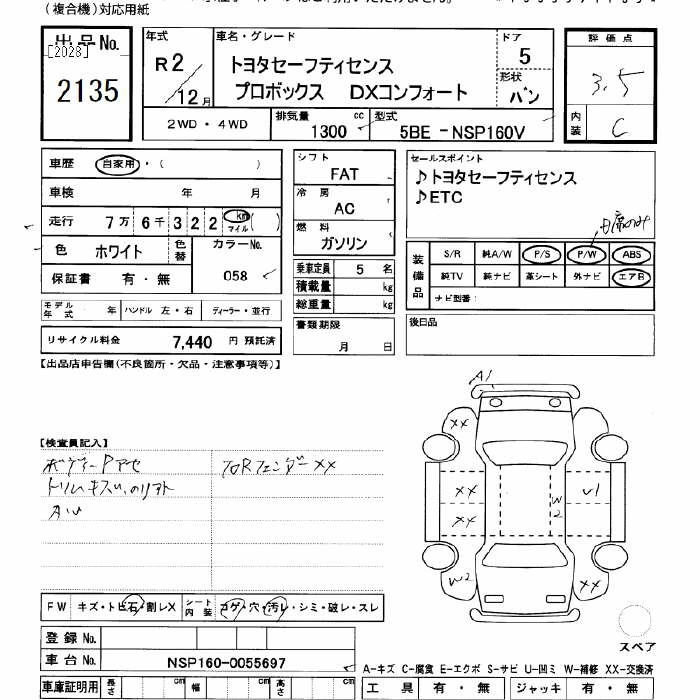 (複合機)対応用紙
出品No.
[2028]
2135
年式
R2/12月
車名・グレード
トヨタセーフティセンス
プロボックス DXコンフォート
ドア
5
形状
バン
評価点
3.5
内装
C
2WD・4WD
排気量
1300 cc
型式
5BE-NSP160V
車歴 自家用・( )
車検 年 月
走行 7万 6千 3 2 2 km マイル ( )
色 ホワイト
色替
カラーNo.
058
保証書 有・無
モデル年式 年
ハンドル 左・右
ディーラー・並行
リサイクル料金 7,440 円 預託済
シフト
FAT
冷房
AC
燃料
ガソリン
乗車定員 5 名
積載量 kg
総重量 kg
書類期限
月 日
セールスポイント
♪トヨタセーフティセンス
♪ETC
装備品
S/R 純A/W P/S P/W ABS
純TV 純ナビ 革シート 外ナビ エアB
ナビ型番:
後日品
【出品店申告欄(不良箇所・欠品・注意事項等)】
【検査員記入】
FW キズ・トビ石・割レX
シート内装 コゲ・穴・汚レ・シミ・破レ・スレ
登録No.
車台No. NSP160-0055697
車庫証明用 長さ cm 幅 cm 高さ cm
A1
XX
XX
XX
W2
U1
W2
XX
スペア
A-キズ C-腐食 E-エクボ S-サビ U-凹ミ W-補修 XX-交換済
工具 有・無
ジャッキ 有・無